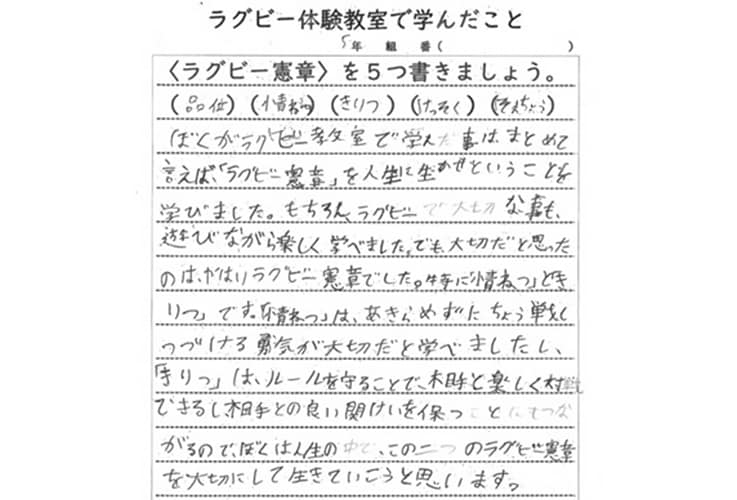 ラグビー体験教室で学んだこと
5年 組 番( )
〈ラグビー憲章〉を5つ書きましょう。
(品位)(情ねつ)(きりつ)(けっそく)(そんちょう)
ぼくがラグビー教室で学んだ事は、まとめて
言えば、「ラグビー憲章」を人生に生かせということを
学びました。もちろん、ラグビーで大切な事も、
遊びながら楽しく学べました。でも、大切だと思った
のは、やはりラグビー憲章でした。特に「情ねつ」とき
りつ」です。「情ねつ」は、あきらめずにちょう戦し
つづける勇気が大切だと学べましたし、
「きりつ」は、ルールを守ることで、相手と楽しく対戦
できるし相手との良い関けいを保つことにもつな
がるので、ぼくは人生の中で、この二つのラグビー憲章
を大切にして生きていこうと思います。